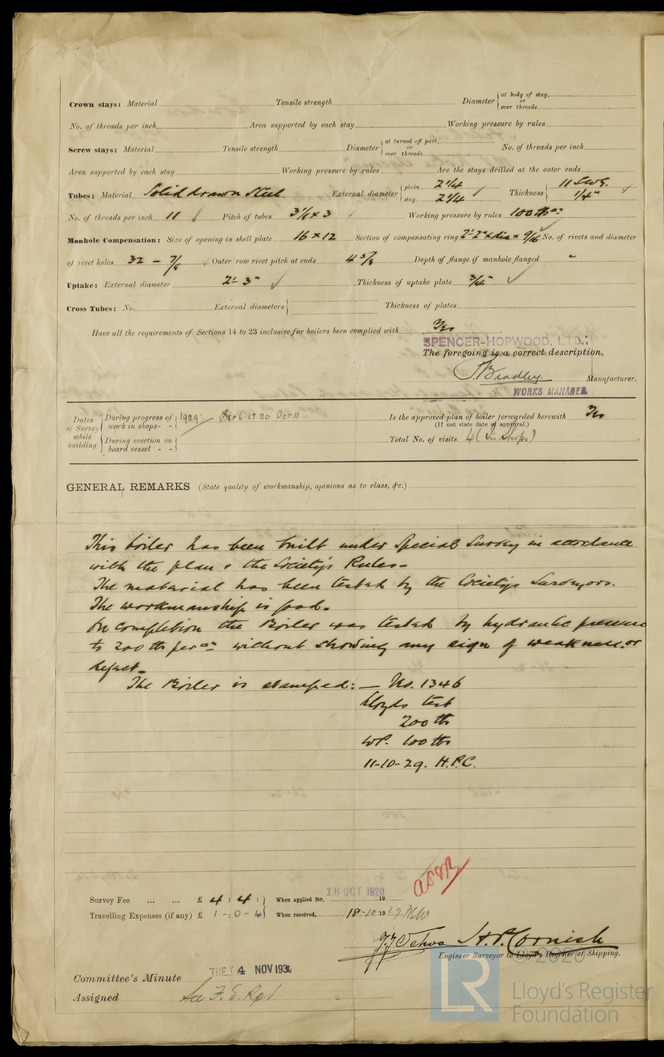 Crown stays: Material Tensile strength Diameter { at body of stay, or over threads
No. of threads per inch Area supported by each stay Working pressure by rules
Screw stays: Material Tensile strength Diameter { at turned off part, or over threads No. of threads per inch
Area supported by each stay Working pressure by rules Are the stays drilled at the outer ends
Tubes: Material Solid drawn Steel External diameter { plain 2 1/4 stay 2 1/4 Thickness { 11 SWG. 1/4"
No. of threads per inch 11 Pitch of tubes 3 1/8 x 3 Working pressure by rules 100 lbs
Manhole Compensation: Size of opening in shell plate 16 x 12 Section of compensating ring 2'-2" dia x 9/16 No. of rivets and diameter
of rivet holes 32 - 7/8 Outer row rivet pitch at ends 4 3/8 Depth of flange if manhole flanged "
Uptake: External diameter 2'- 3" Thickness of uptake plate 3/4"
Cross Tubes: No. External diameters { Thickness of plates
Have all the requirements of Sections 14 to 23 inclusive for boilers been complied with Yes
SPENCER-HOPWOOD, LTD.:
The foregoing is a correct description,
Bradley Manufacturer.
WORKS MANAGER.
Dates of Survey while building { During progress of work in shops - - } 1929: Sep 6 17 20 Oct 11 Is the approved plan of boiler forwarded herewith Yes
(If not state date of approval.)
{ During erection on board vessel - - } Total No. of visits 4 (In Shops)
GENERAL REMARKS (State quality of workmanship, opinions as to class, &c.)
This boiler has been built under Special Survey in accordance
with the plan & the Society's Rules.
The material has been tested by the Society's Surveyors.
The workmanship is good.
On completion the Boiler was tested by hydraulic pressure
to 200 lbs per □" without showing any sign of weakness or
defect.
The Boiler is stamped: — No. 1346
Lloyds test
200 lbs
WP. 100 lbs
11-10-29. H.P.C.
Survey Fee ... ... £ 4 : 4 : } When applied for, 18 OCT 1929 19
Travelling Expenses (if any) £ 1 - : 0 - 4 } When received, 18-10 1929
H.P. Cornish
Engineer Surveyor to Lloyd's Register of Shipping.
Committee's Minute TUE. 4 NOV 193
Assigned See F. E. Rpt
© 2020
LR
Lloyd's Register
Foundation